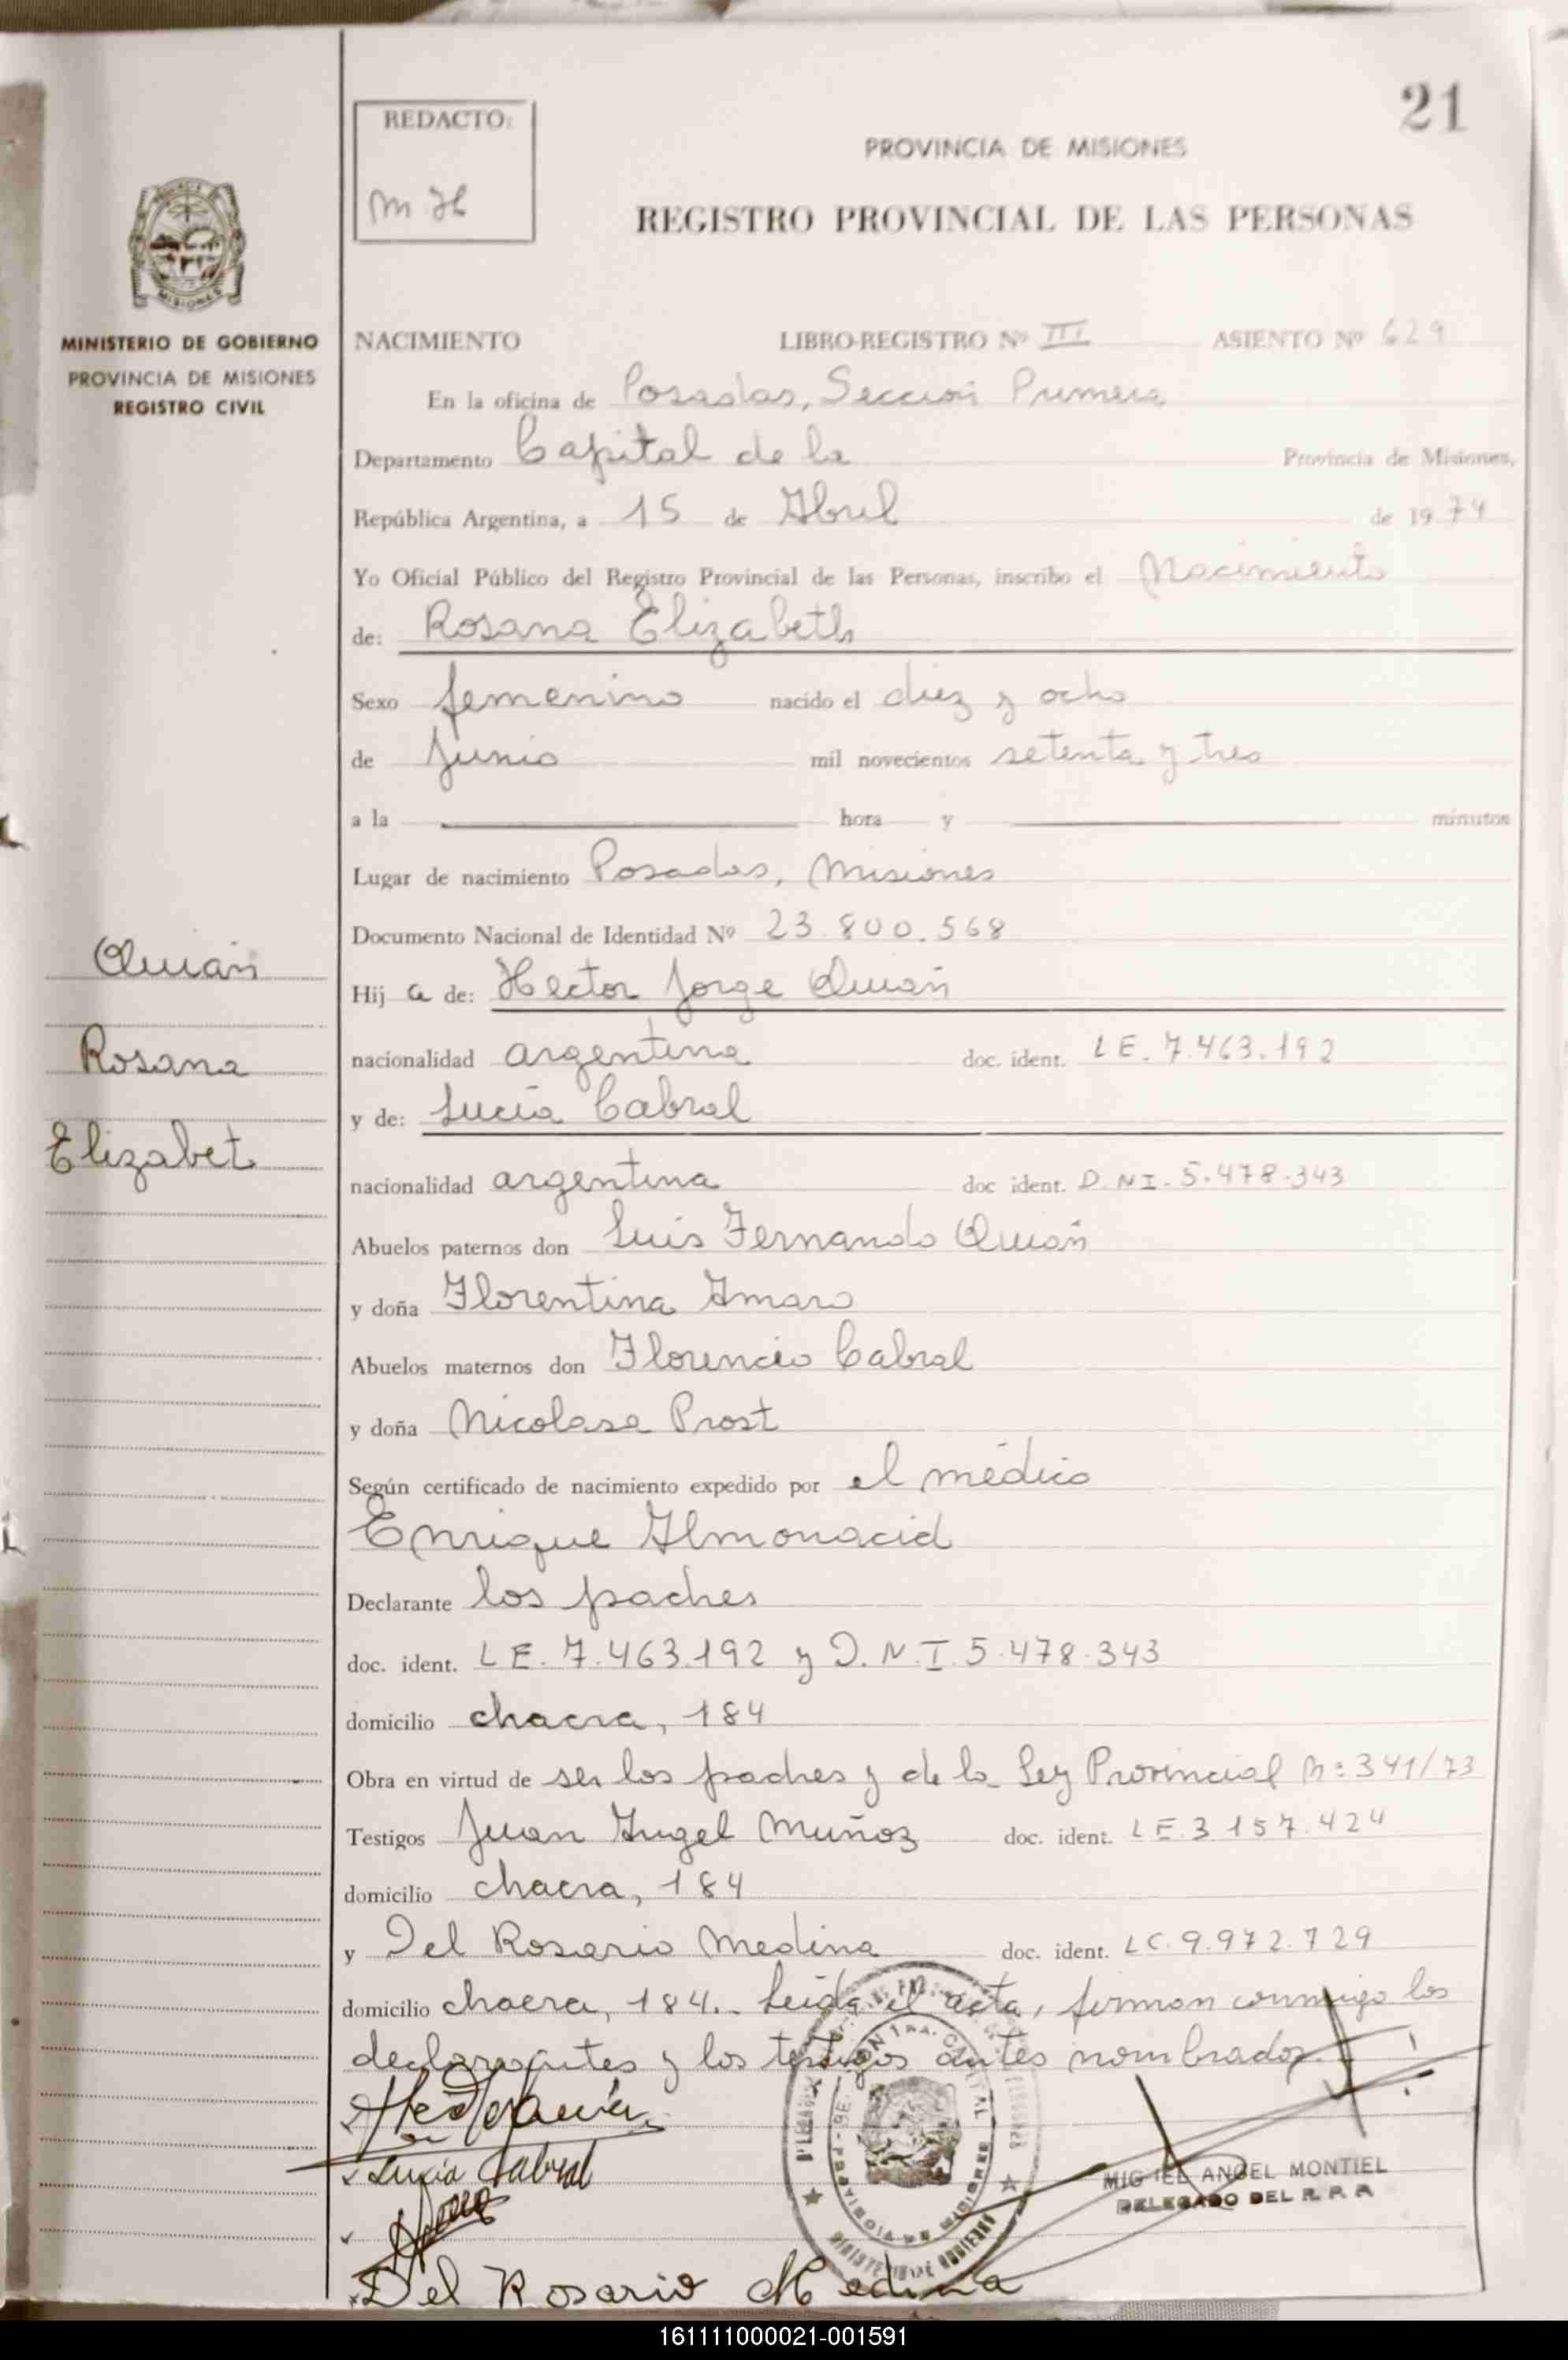 21
REDACTO:
M.H
PROVINCIA DE MISIONES
REGISTRO PROVINCIAL DE LAS PERSONAS
MISIONES
MINISTERIO DE GOBIERNO
PROVINCIA DE MISIONES
REGISTRO CIVIL
NACIMIENTO LIBRO-REGISTRO Nº III ASIENTO Nº 629
En la oficina de Posadas, Sección Primera
Departamento Capital de la Provincia de Misiones,
República Argentina, a 15 de Abril de 1974
Yo Oficial Público del Registro Provincial de las Personas, inscribo el Nacimiento
de: Rosana Elizabeth
Sexo femenino nacido el diez y ocho
de Junio mil novecientos setenta y tres
a la hora y minutos
Lugar de nacimiento Posadas, Misiones
Documento Nacional de Identidad Nº 23.800.568
Hij a de: Hector Jorge
nacionalidad argentina doc. ident. LE. 7.463.192
y de: Lucía Cabral
nacionalidad argentina doc ident. D.NI. 5.478.343
Abuelos paternos don Luis Fernando
y doña Florentina Amaro
Abuelos maternos don Florencio Cabral
y doña Nicolasa Prost
Según certificado de nacimiento expedido por el médico
Enrique Almonacid
Declarante los padres
doc. ident. LE. 7.463.192 y D.N.I. 5.478.343
domicilio chacra, 184
Obra en virtud de ser los padres y de la Ley Provincial Nº 341/73
Testigos Juan Angel Muñoz doc. ident. LE. 3.157.424
domicilio chacra, 184
y Del Rosario Medina doc. ident. LC. 9.972.729
domicilio chacra, 184. Leída el acta, firman conmigo los
declarantes y los testigos antes nombrados.
Rosana
Elizabet
Lucía Cabral
Del Rosario Medina
MIGUEL ANGEL MONTIEL
DELEGADO DEL R.P.P.
PROVINCIA DE MISIONES
MINISTERIO DE GOBIERNO
161111000021-001591